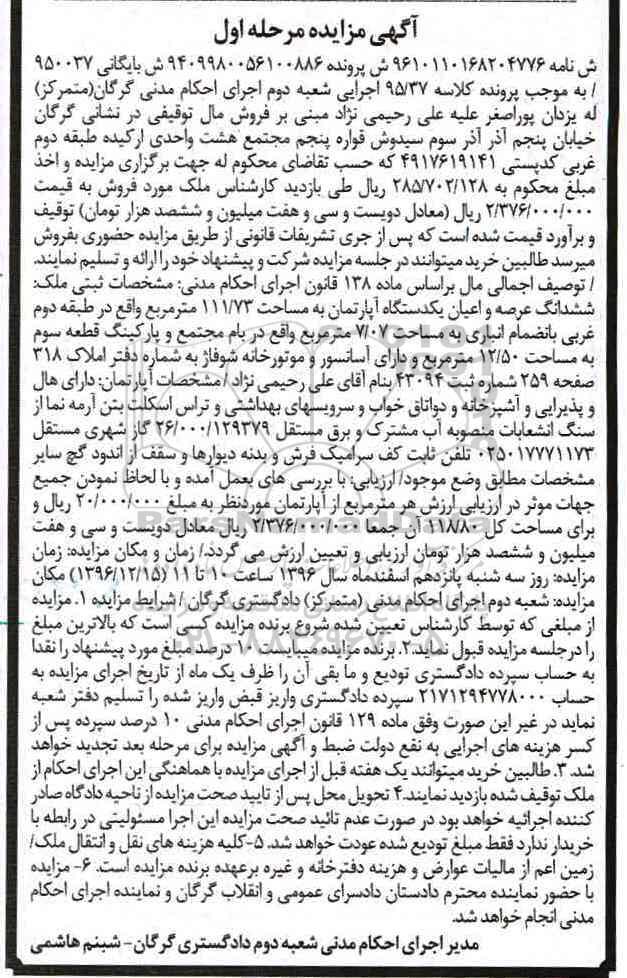 آگهی مزایده مرحله اول
ش نامه ۹۶۱۰۱۱۰۱۶۸۲۰۴۷۷۶ ش پرونده ۹۴۰۹۹۸۰۰۵۶۱۰۰۸۸۶ ش بایگانی ۹۵۰۰۳۷
/ به موجب پرونده کلاسه ۹۵/۳۷ اجرایی شعبه دوم اجرای احکام مدنی گرگان(متمرکز)
له یزدان پوراصغر علیه علی رحیمی نژاد مبنی بر فروش مال توقیفی در نشانی گرگان
خیابان پنجم آذر آذر سوم سیدوش قواره پنجم مجتمع هشت واحدی ارکیده طبقه دوم
غربی کدپستی ۴۹۱۷۶۱۹۱۴۱ که حسب تقاضای محکوم له جهت برگزاری مزایده و اخذ
مبلغ محکوم به ۲۸۵/۷۰۲/۱۲۸ ریال طی بازدید کارشناس ملک مورد فروش به قیمت
۲/۳۷۶/۰۰۰/۰۰۰ ریال (معادل دویست و سی و هفت میلیون و ششصد هزار تومان) توقیف
و برآورد قیمت شده است که پس از جری تشریفات قانونی از طریق مزایده حضوری بفروش
میرسد طالبین خرید میتوانند در جلسه مزایده شرکت و پیشنهاد خود را ارائه و تسلیم نمایند.
/ توصیف اجمالی مال براساس ماده ۱۳۸ قانون اجرای احکام مدنی: مشخصات ثبتی ملک:
ششدانگ عرصه و اعیان یکدستگاه آپارتمان به مساحت ۱۱۱/۷۳ مترمربع واقع در طبقه دوم
غربی بانضمام انباری به مساحت ۷/۰۷ مترمربع واقع در بام مجتمع و پارکینگ قطعه سوم
به مساحت ۱۲/۵۰ مترمربع و دارای آسانسور و موتورخانه شوفاژ به شماره دفتر املاک ۳۱۸
صفحه ۲۵۹ شماره ثبت ۴۳۰۹۴ بنام آقای علی رحیمی نژاد /مشخصات آپارتمان: دارای هال
و پذیرایی و آشپزخانه و دواتاق خواب و سرویسهای بهداشتی و تراس اسکلت بتن آرمه نما از
سنگ انشعابات منصوبه آب مشترک و برق مستقل ۲۶/۰۰۰/۱۲۹۳۷۹ گاز شهری مستقل
۰۲۵۰۱۷۷۷۱۱۷۳ تلفن ثابت کف سرامیک فرش و بدنه دیوارها و سقف از اندود گچ سایر
مشخصات مطابق وضع موجود/ ارزیابی: با بررسی های بعمل آمده و با لحاظ نمودن جمیع
جهات موثر در ارزیابی ارزش هر مترمربع از آپارتمان موردنظر به مبلغ ۲۰/۰۰۰/۰۰۰ ریال و
برای مساحت کل ۱۱۸/۸۰ آن جمعا ۲/۳۷۶/۰۰۰/۰۰۰ ریال معادل دویست و سی و هفت
میلیون و ششصد هزار تومان ارزیابی و تعیین ارزش می گردد./ زمان و مکان مزایده: زمان
مزایده: روز سه شنبه پانزدهم اسفندماه سال ۱۳۹۶ ساعت ۱۰ تا ۱۱ (۱۳۹۶/۱۲/۱۵) مکان
مزایده: شعبه دوم اجرای احکام مدنی (متمرکز) دادگستری گرگان / شرایط مزایده ۱. مزایده
از مبلغی که توسط کارشناس تعیین شده شروع برنده مزایده کسی است که بالاترین مبلغ
را درجلسه مزایده قبول نماید.۲. برنده مزایده میبایست ۱۰ درصد مبلغ مورد پیشنهاد را نقدا
به حساب سپرده دادگستری تودیع و ما بقی آن را ظرف یک ماه از تاریخ اجرای مزایده به
حساب ۲۱۷۱۲۹۴۷۷۸۰۰۰ سپرده دادگستری واریز قبض واریز شده را تسلیم دفتر شعبه
نماید در غیر این صورت وفق ماده ۱۲۹ قانون اجرای احکام مدنی ۱۰ درصد سپرده پس از
کسر هزینه های اجرایی به نفع دولت ضبط و آگهی مزایده برای مرحله بعد تجدید خواهد
شد. ۳. طالبین خرید میتوانند یک هفته قبل از اجرای مزایده با هماهنگی این اجرای احکام از
ملک توقیف شده بازدید نمایند.۴ تحویل محل پس از تایید صحت مزایده از ناحیه دادگاه صادر
کننده اجرائیه خواهد بود در صورت عدم تائید صحت مزایده این اجرا مسئولیتی در رابطه با
خریدار ندارد فقط مبلغ تودیع شده عودت خواهد شد. ۵-کلیه هزینه های نقل و انتقال ملک/
زمین اعم از مالیات عوارض و هزینه دفترخانه و غیره برعهده برنده مزایده است. ۶- مزایده
با حضور نماینده محترم دادستان دادسرای عمومی و انقلاب گرگان و نماینده اجرای احکام
مدنی انجام خواهد شد.
مدیر اجرای احکام مدنی شعبه دوم دادگستری گرگان- شبنم هاشمی